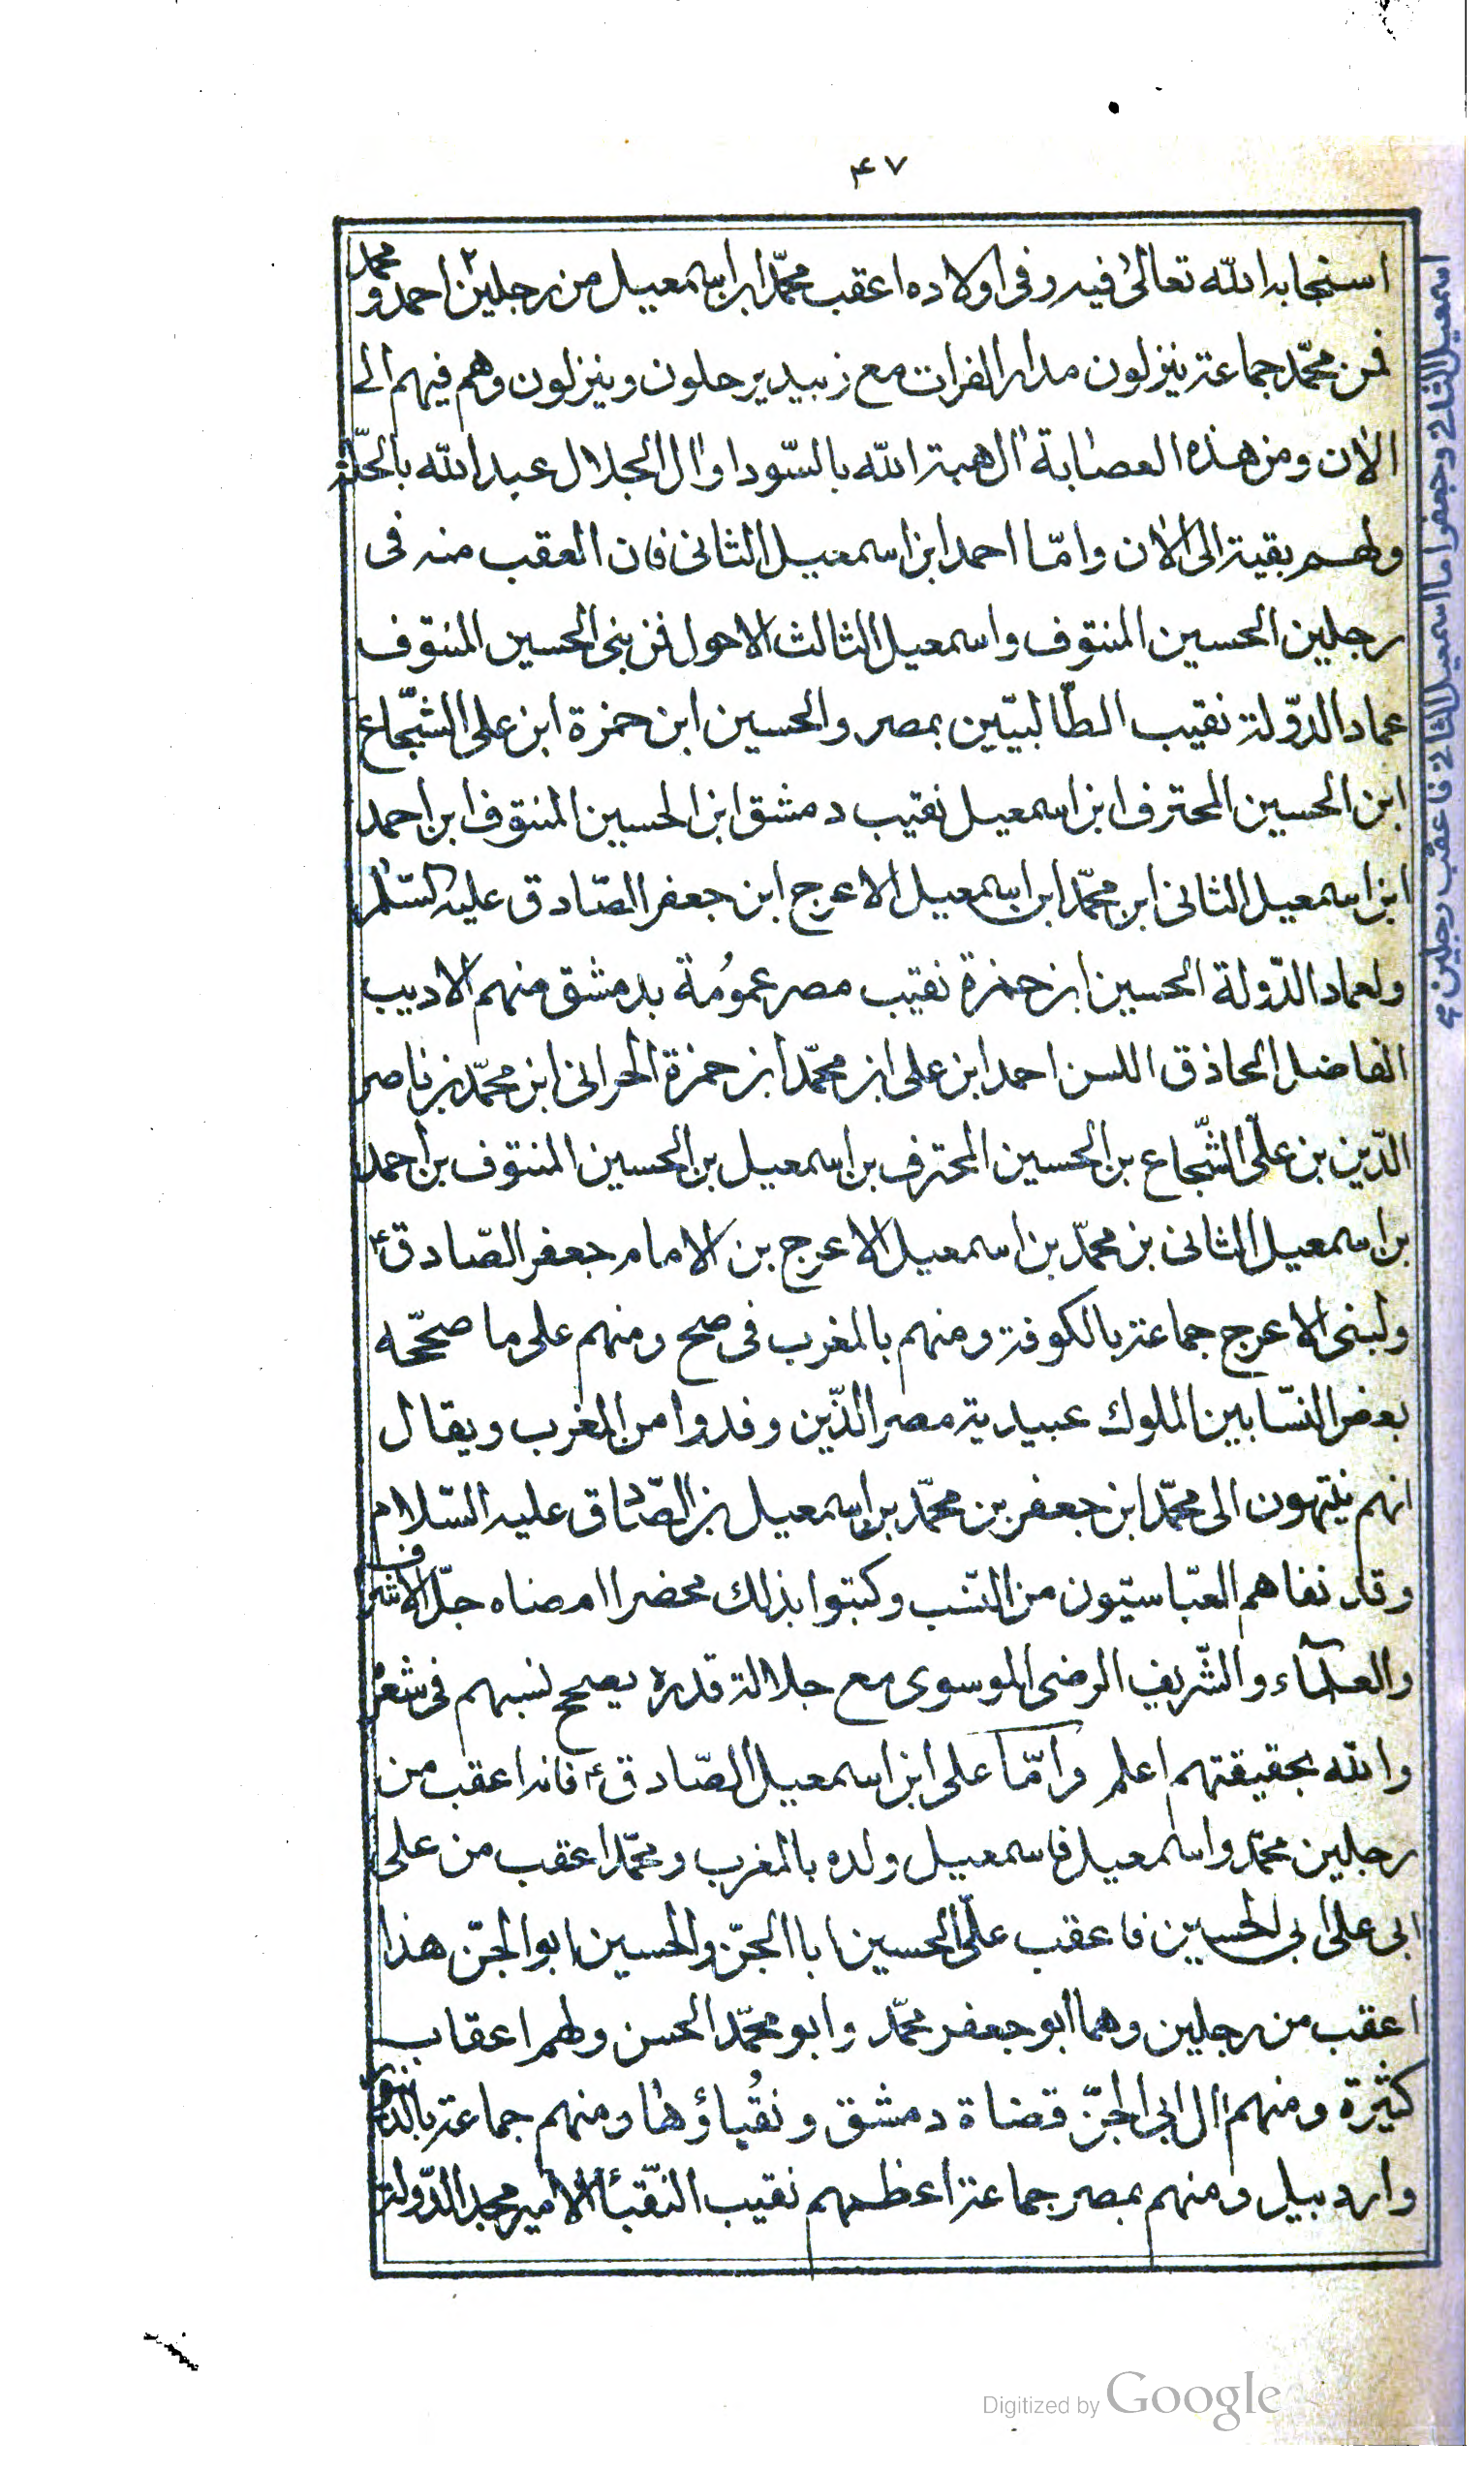 ۴۷
استجابه الله تعالى فيه وفى اولاده اعقب محمّد ابن اسمعيل من رجلين ٢ احمد و محمد
فمن محمّد جماعة ينزلون مدار الفرات مع زبيد يرحلون وينزلون وهم فيهم الى
الآن ومن هذه العصابة آل هبة الله بالسّودا وآل الجلال عبد الله بالحلّة
ولهم بقية الى الآن وامّا احمد ابن اسمعيل الثانى فان العقب منه فى
رجلين الحسين المنتوف واسمعيل الثالث الاحول فمن بنى الحسين المنتوف
عماد الدّولة نقيب الطّالبيّين بمصر والحسين ابن حمزة ابن على الشّجاع
ابن الحسين المحترف ابن اسمعيل نقيب دمشق ابن الحسين المنتوف ابن احمد
ابن اسمعيل الثانى ابن محمّد ابن اسمعيل الاعرج ابن جعفر الصّادق عليه السّلام
ولعماد الدّولة الحسين ابن حمزة نقيب مصر عمُومُة بدمشق منهم الاديب
الفاضل الحاذق اللسن احمد ابن على ابن محمّد ابن حمزة الحرانى ابن محمّد بن ناصر
الدّين بن علّى الشّجاع بن الحسين المحترف بن اسمعيل بن الحسين المنتوف بن احمد
بن اسمعيل الثانى بن محمّد بن اسمعيل الاعرج بن الامام جعفر الصّادق ع
ولبنى الاعرج جماعة بالكوفة ومنهم بالمغرب فى صح ومنهم على ما صحّحه
بعض النسّابين الملوك عبيدية مصر الذّين وفدوا من المغرب ويقال
انهم ينتهون الى محمّد ابن جعفر بن محمّد بن اسمعيل بن الصّادق عليه السّلام
وقد نفاهم العبّاسيّون من النّسب وكتبوا بذلك محضرا امضاه جلّ الاشراف
والعلمآء والشّريف الرضى الموسوى مع جلالة قدره يصحح نسبهم فى شعره
والله بحقيقتهم اعلم وامّا على ابن اسمعيل الصّادق ع فانه اعقب من
رجلين محمّد واسمعيل فاسمعيل ولده بالمغرب ومحمّد اعقب من على
ابى على ابى الحسين فاعقب علّى الحسين ابا الجنّ والحسين ابو الجنّ هذا
اعقب من رجلين وهما ابو جعفر محمّد وابو محمّد الحسن ولهم اعقاب
كثيرة ومنهم آل ابى الجنّ قضاة دمشق ونقُباؤها ومنهم جماعة بالدينور
واردبيل ومنهم بمصر جماعة اعظمهم نقيب النّقبأ الامير مجد الدّولة
اسمعيل الثانى وجعفر اما اسمعيل الثانى فاعقب رجلين